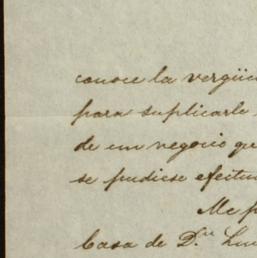 conoce la vergüe
para suplicarle
de un negocio que
se pudiese efectu
Me p
Casa de D.ⁿ Lu